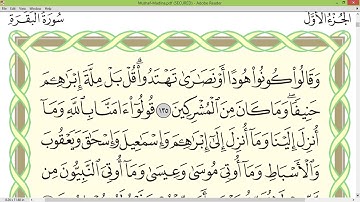 Mushaf-Madina.pdf (SECURED) - Adobe Reader
سُورَةُ الْبَقَرَةِ
الجُزْءُ الأَوَّلُ
وَقَالُوا۟ كُونُوا۟ هُودًا أَوْ نَصَٰرَىٰ تَهْتَدُوا۟ ۗ قُلْ بَلْ مِلَّةَ إِبْرَٰهِـۧمَ
حَنِيفًا ۖ وَمَا كَانَ مِنَ ٱلْمُشْرِكِينَ ١٣٥ قُولُوٓا۟ ءَامَنَّا بِٱللَّهِ وَمَآ
أُنزِلَ إِلَيْنَا وَمَآ أُنزِلَ إِلَىٰٓ إِبْرَٰهِـۧمَ وَإِسْمَٰعِيلَ وَإِسْحَٰقَ وَيَعْقُوبَ
وَٱلْأَسْبَاطِ وَمَآ أُوتِىَ مُوسَىٰ وَعِيسَىٰ وَمَآ أُوتِىَ ٱلنَّبِيُّونَ مِن